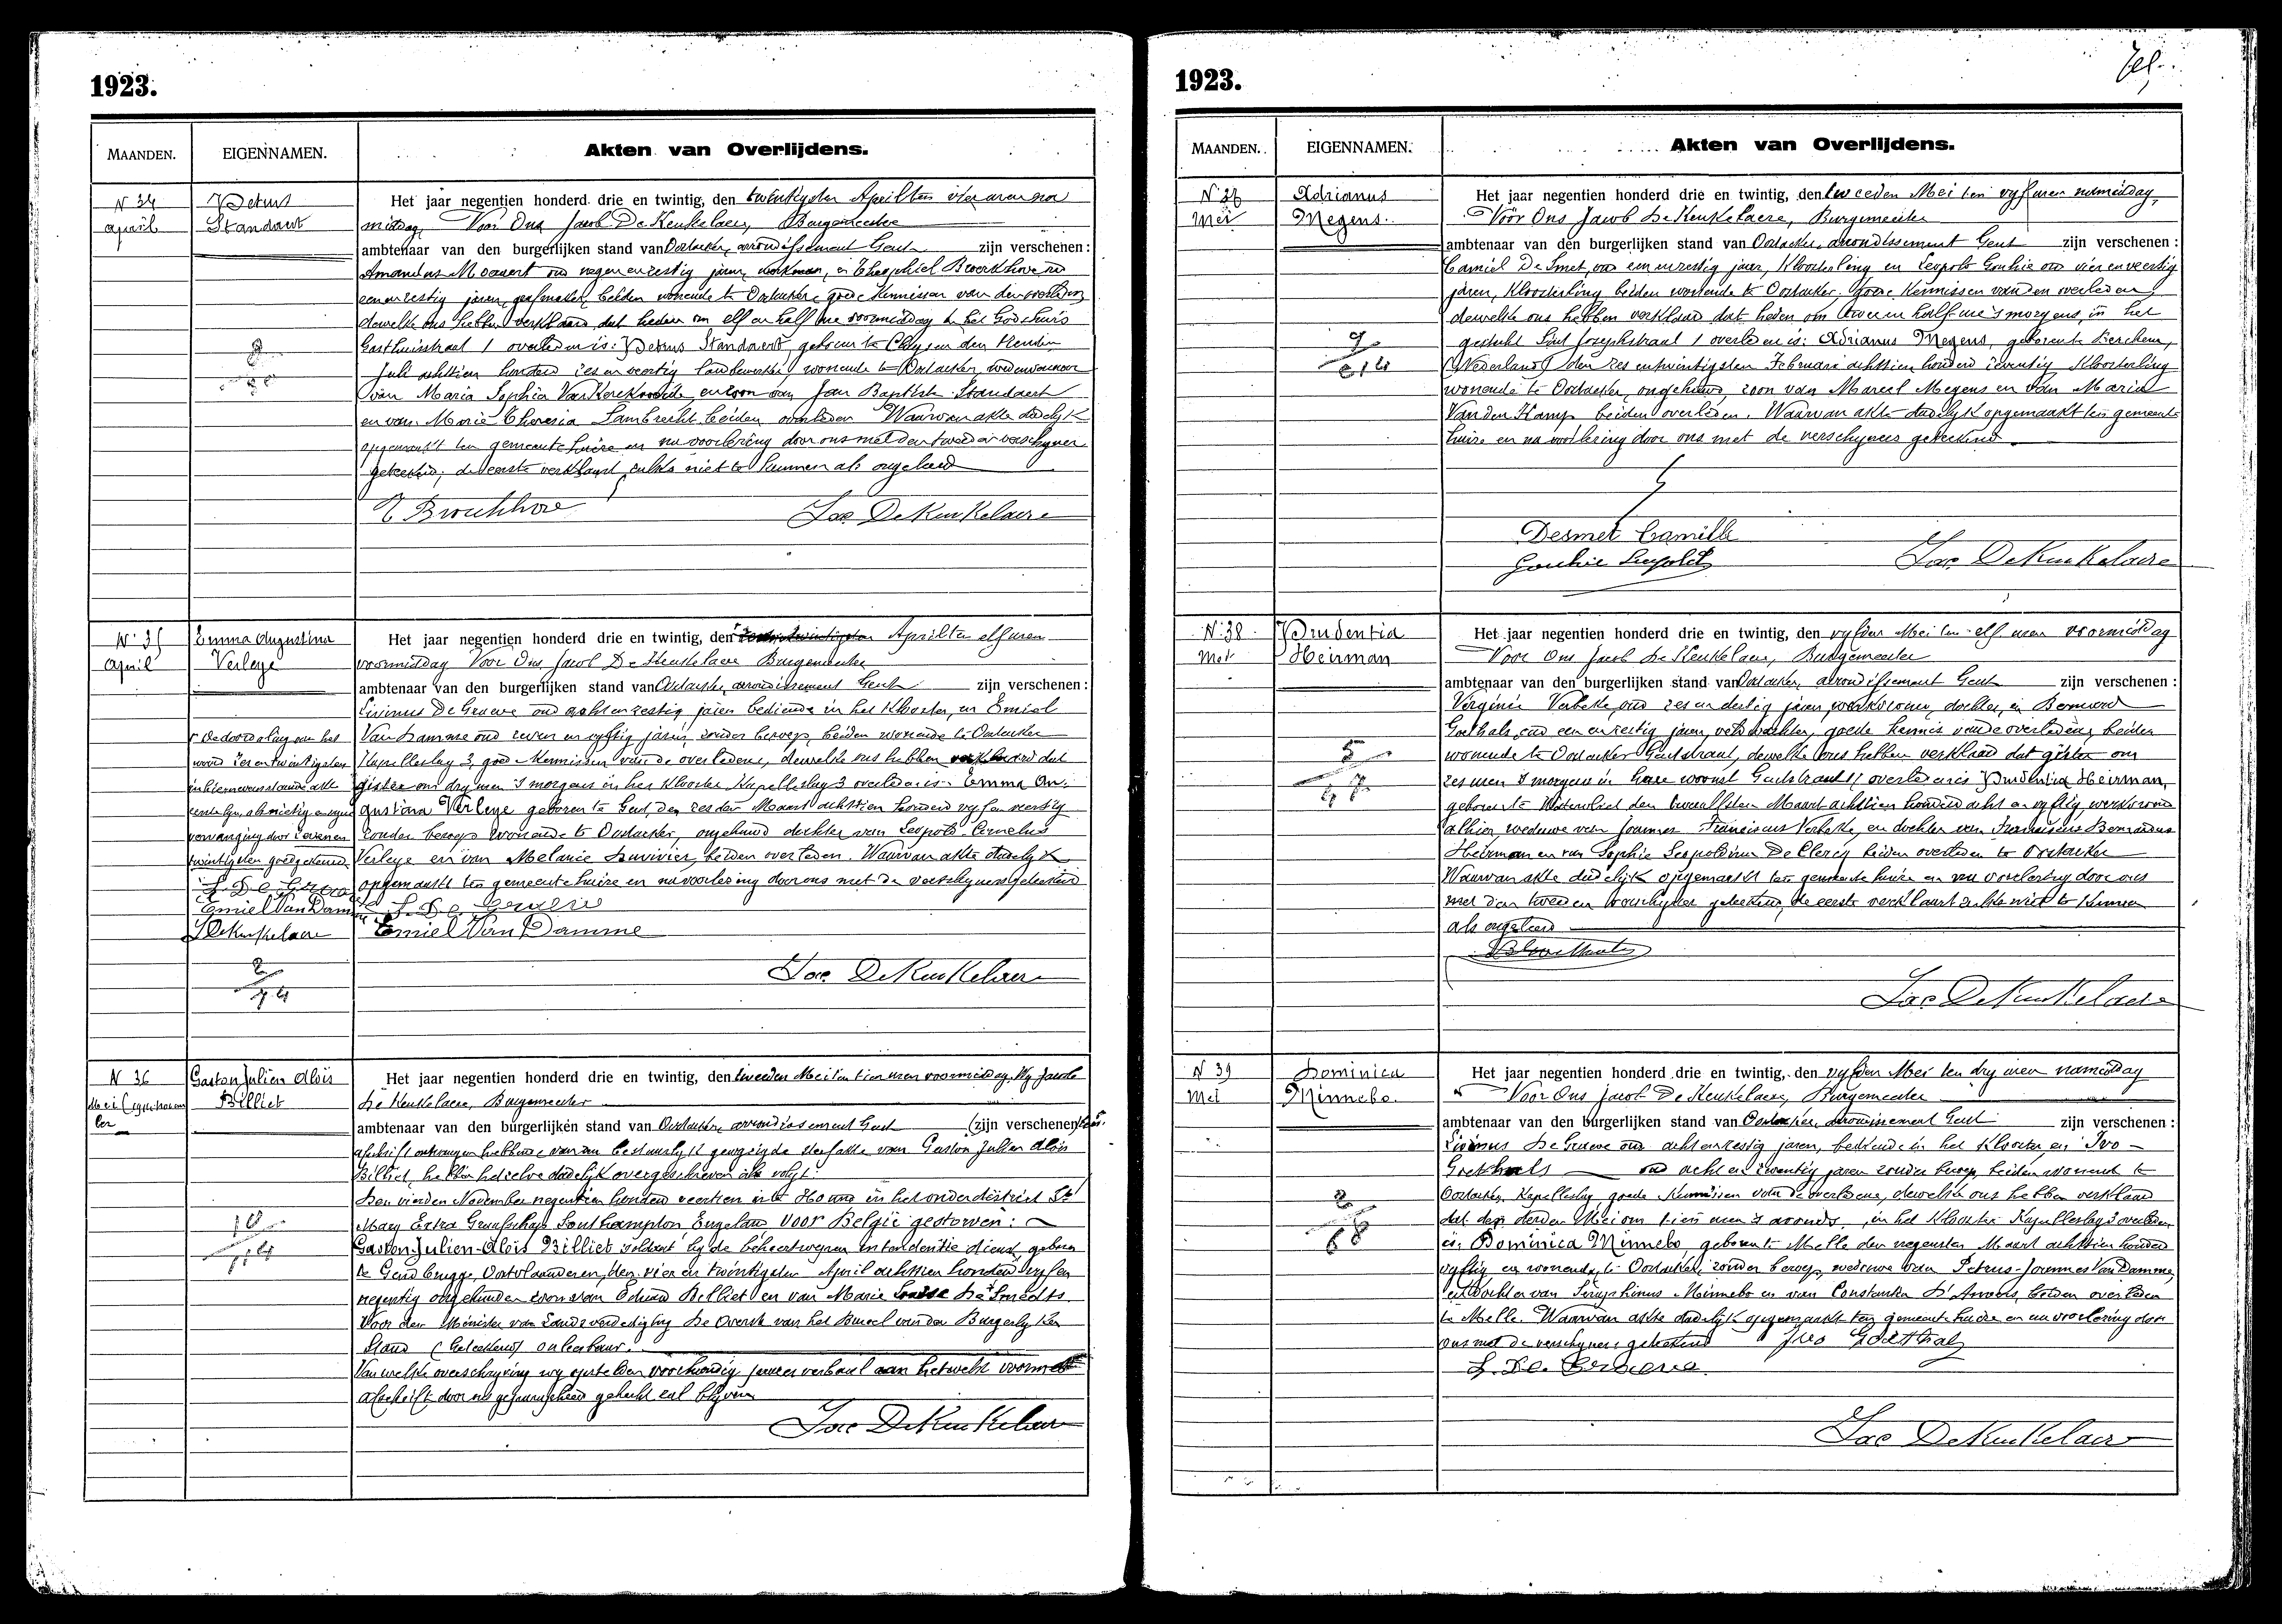 1923.
MAANDEN.
EIGENNAMEN.
Akten van Overlijdens.
N 34
april
Petrus
Standaert
Het jaar negentien honderd drie en twintig, den twintigsten April ten vier uren na
middag Voor Ons Jacob De Keukelaere, Burgemeester
ambtenaar van den burgerlijken stand van Oostacker, arrondissement Gent zijn verschenen :
Amandus Moeaert oud negen en zestig jaren, werkman, en Theophiel Broeckhove oud
een en zestig jaren, grafmaker, beiden wonende te Oostacker, goede Kennissen van den overleden
dewelke ons hebben verklaard dat heden om elf en half ure voormiddag in het Godshuis
Gasthuisstraat 1 overleden is: Petrus Standaert, geboren te Cluysen den
Juli achttien honderd zes en veertig landbewerker wonende te Oostacker, weduwnaar
van Maria Sophia Van Kerckvoorde en zoon van Jan Baptiste Standaert
en van Marie Theresia Lambrecht beiden overleden Waarvan akte dadelijk
opgemaakt ten gemeente huize en na voorlezing door ons met den tweeden verschyner
geteekend; de eerste verklaart zulks niet te kunnen als ongeleerd
Jac. De Keukelaere
N. 35
April
Emma Augustina
Verleye
Het jaar negentien honderd drie en twintig, den zesentwintigsten April ten elf uren
voormiddag Voor Ons Jacob De Keukelaere Burgemeester
ambtenaar van den burgerlijken stand van Oostacker, arrondissement Gent zijn verschenen :
Livinus De Graeve oud acht en zestig jaren bediende in het Klooster, en Emiel
Van Damme oud zeven en vyftig jaren, zonder beroep, beiden wonende te Oostacker
Kapelleslag 3, goede Kennissen van de overledene, dewelke ons hebben verklaard dat
gister om dry uren 's morgens in het Klooster Kapelleslag 3 overleden is. Emma Au-
gustina Verleye geboren te Gent, den zesden Maart achttien honderd vyf en veertig
zonder beroep wonende te Oostacker, ongehuwd dochter van Leopold Cornelus
Verleye en van Melanie Duvivier, beiden overleden. Waarvan akte dadelyk
opgemaakt ten gemeente huize en na voorlezing door ons met de verschyners geteekend
De doorhaling van het
woord zes en twintigsten
in bovenstaande akte
vervanging door zeven en
twintigsten goedgekeurd
L. De Graeve
Emiel Van Damme
J De Keukelaere
L. De Graeve
Emiel Van Damme
Jac. De Keukelaere
N 36
Mei
Gaston Julien Aloïs
Billiet
Het jaar negentien honderd drie en twintig, den tweeden Mei ten tien uren voormiddag Wy Jacob
De Keukelaere, Burgemeester
ambtenaar van den burgerlijken stand van Oostacker, arrondissement Gent (zijn verschenen)
afschrift ontvangen hebbende van een bestuurlyk gewyzigde sterfakte van Gaston Julien Aloïs
Billiet, hebben hetzelve dadelijk overgeschreven als volgt:
Den vierden November negentien honderd veertien is te in het onderdistrict St
Mary Extra Graafschap Southampton Engeland, voor België gestorven:
Gaston-Julien-Aloïs Billiet soldaat by de beheertroepen intendentie dienst, geboren
te Gendbrugge, Oostvlaanderen, den vier en twintigsten April achttien honderd vyf en
negentig ongehuwden zoon van Eduard Billiet en van Marie Louise De Smedts
Voor den Minister van Landsverdediging De Overste van het Bureel van den Burgerlyken
Stand (Geteekend) onleesbaar.
Van welke overschryving wy opstelden voorhandig proces verbaal aan hetwelk voormeld
afschrift door ons gewaarmerkt gehecht zal blyven
Jac De Keukelaere
1923.
MAANDEN.
EIGENNAMEN.
Akten van Overlijdens.
Mei
Adrianus
Megens.
Het jaar negentien honderd drie en twintig, den tweeden Mei ten vyf uren namiddag,
Voor Ons Jacob De Keukelaere, Burgemeester
ambtenaar van den burgerlijken stand van Oostacker, arrondissement Gent zijn verschenen :
Camiel De Smet, oud een en zestig jaar, Kloosterling en Leopold Gouhie oud vier en veertig
jaren, Kloosterling beiden wonende te Oostacker. goede Kennissen van den overleden,
dewelke ons hebben verklaard dat heden om twee en half ure 's morgens, in het
gesticht Sint Josephstraat 1 overleden is: Adrianus Megens, geboren te Berchem,
(Nederland) den zes en twintigsten Februari achttien honderd zeventig Kloosterling
wonende te Oostacker, ongehuwd, zoon van Marcel Megens en van Maria
Van den Kamp beiden overleden. Waarvan akte dadelyk opgemaakt ten gemeente
huize en na voorlezing door ons met de verschyners geteekend
Desmet Camille
Gouhie Leopold
Jac. De Keukelaere
N. 38
Mei
Prudentia
Heirman
Het jaar negentien honderd drie en twintig, den vyfden Mei ten elf uren voormiddag
Voor Ons Jacob De Keukelaere, Burgemeester
ambtenaar van den burgerlijken stand van Oostacker, arrondissement Gent zijn verschenen :
Virginie Verbeke, oud zes en dertig jaren, werkvrouw, dochter, en Bernard
Goethals, oud een en zestig jaren, veldwachter, goede kennis van de overledene, beiden
wonende te Oostacker Gentstraat, dewelke ons hebben verklaard dat gister om
zes uren 's morgens in hare woonst Gentstraat 11 overleden is Prudentia Heirman,
geboren te Wittenhoek den twaalfden Maart achttien honderd acht en vyftig, werkvrouw
alhier, weduwe van Joannes Franciscus Verbeke, en dochter van Franciscus Bernardus
Heirman en van Sophie Leopoldina De Clercq beiden overleden te Oostacker
Waarvan akte dadelijk opgemaakt ten gemeente huize en na voorlezing door ons
met den tweeden verschyner geteekend, de eerste verklaart zulks niet te kunnen
als ongeleerd
Jac De Keukelaere
N 39
Mei
Dominica
Minnebo.
Het jaar negentien honderd drie en twintig, den vyfden Mei ten dry uren namiddag
Voor Ons Jacob De Keukelaere, Burgemeester
ambtenaar van den burgerlijken stand van Oostacker, arrondissement Gent zijn verschenen :
Livinus De Graeve oud acht en zestig jaren, bediende in het Klooster, en Ivo
Goethals oud acht en twintig jaren zonder beroep, beiden wonend te
Oostacker, Kapelleslag goede Kennissen van de overledene, dewelke ons hebben verklaard
dat den derden Mei om tien uren 's avonds, in het Klooster Kapelleslag 3 overleden
is: Dominica Minnebo geboren te Melle den negensten Maart achttien honderd
vyftig en wonende te Oostacker, zonder beroep, weduwe van Petrus-Joannes Van Damme,
en dochter van Seraphinus Minnebo en van Constantia D'Hondt, beiden overleden
te Melle. Waarvan akte dadelyk opgemaakt ten gemeente huize en na voorlezing door
ons met de verschyners geteekend Ivo Goethals
L. De Graeve
Jac De Keukelaere